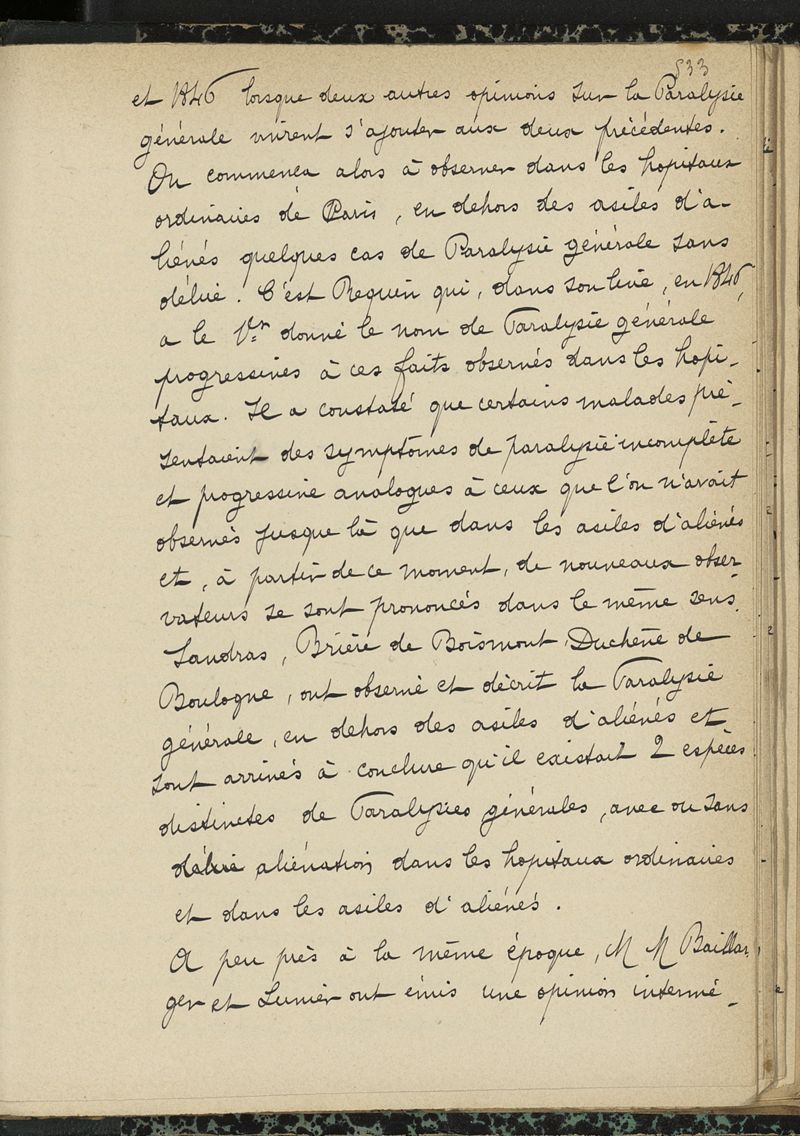 533
et 1846 lorsque deux autres opinions sur la Paralysie
générale vinrent s'ajouter aux deux précédentes.
On commença alors à observer dans les hopitaux
ordinaires de Paris, en dehors des asiles d'a-
liénés quelques cas de Paralysie générale sans
délire. C'est Requin qui, dans son livre, en 1846,
a le 1er donné le nom de Paralysie générale
progressives à ces faits observés dans les hopi-
taux. Il a constaté que certains malades pré-
sentaient des symptômes de paralysie incomplète
et progressive analogues à ceux que l'on n'avait
observés jusque là que dans les asiles d'aliénés
et, à partir de ce moment, de nouveaux obser-
vateurs se sont prononcés dans le même sens.
Sandras, Brière de Boismont, Duchêne de
Boulogne, ont observé et décrit la Paralysie
générale, en dehors des asiles d'aliénés et
sont arrivés à conclure qu'il existait 2 espèces
distinctes de Paralysies générales, avec ou sans
délire aliénation dans les hopitaux ordinaires
et dans les asiles d'aliénés.
A peu près à la même époque, M M Baillar-
ger et Lunier ont émis une opinion intermé-